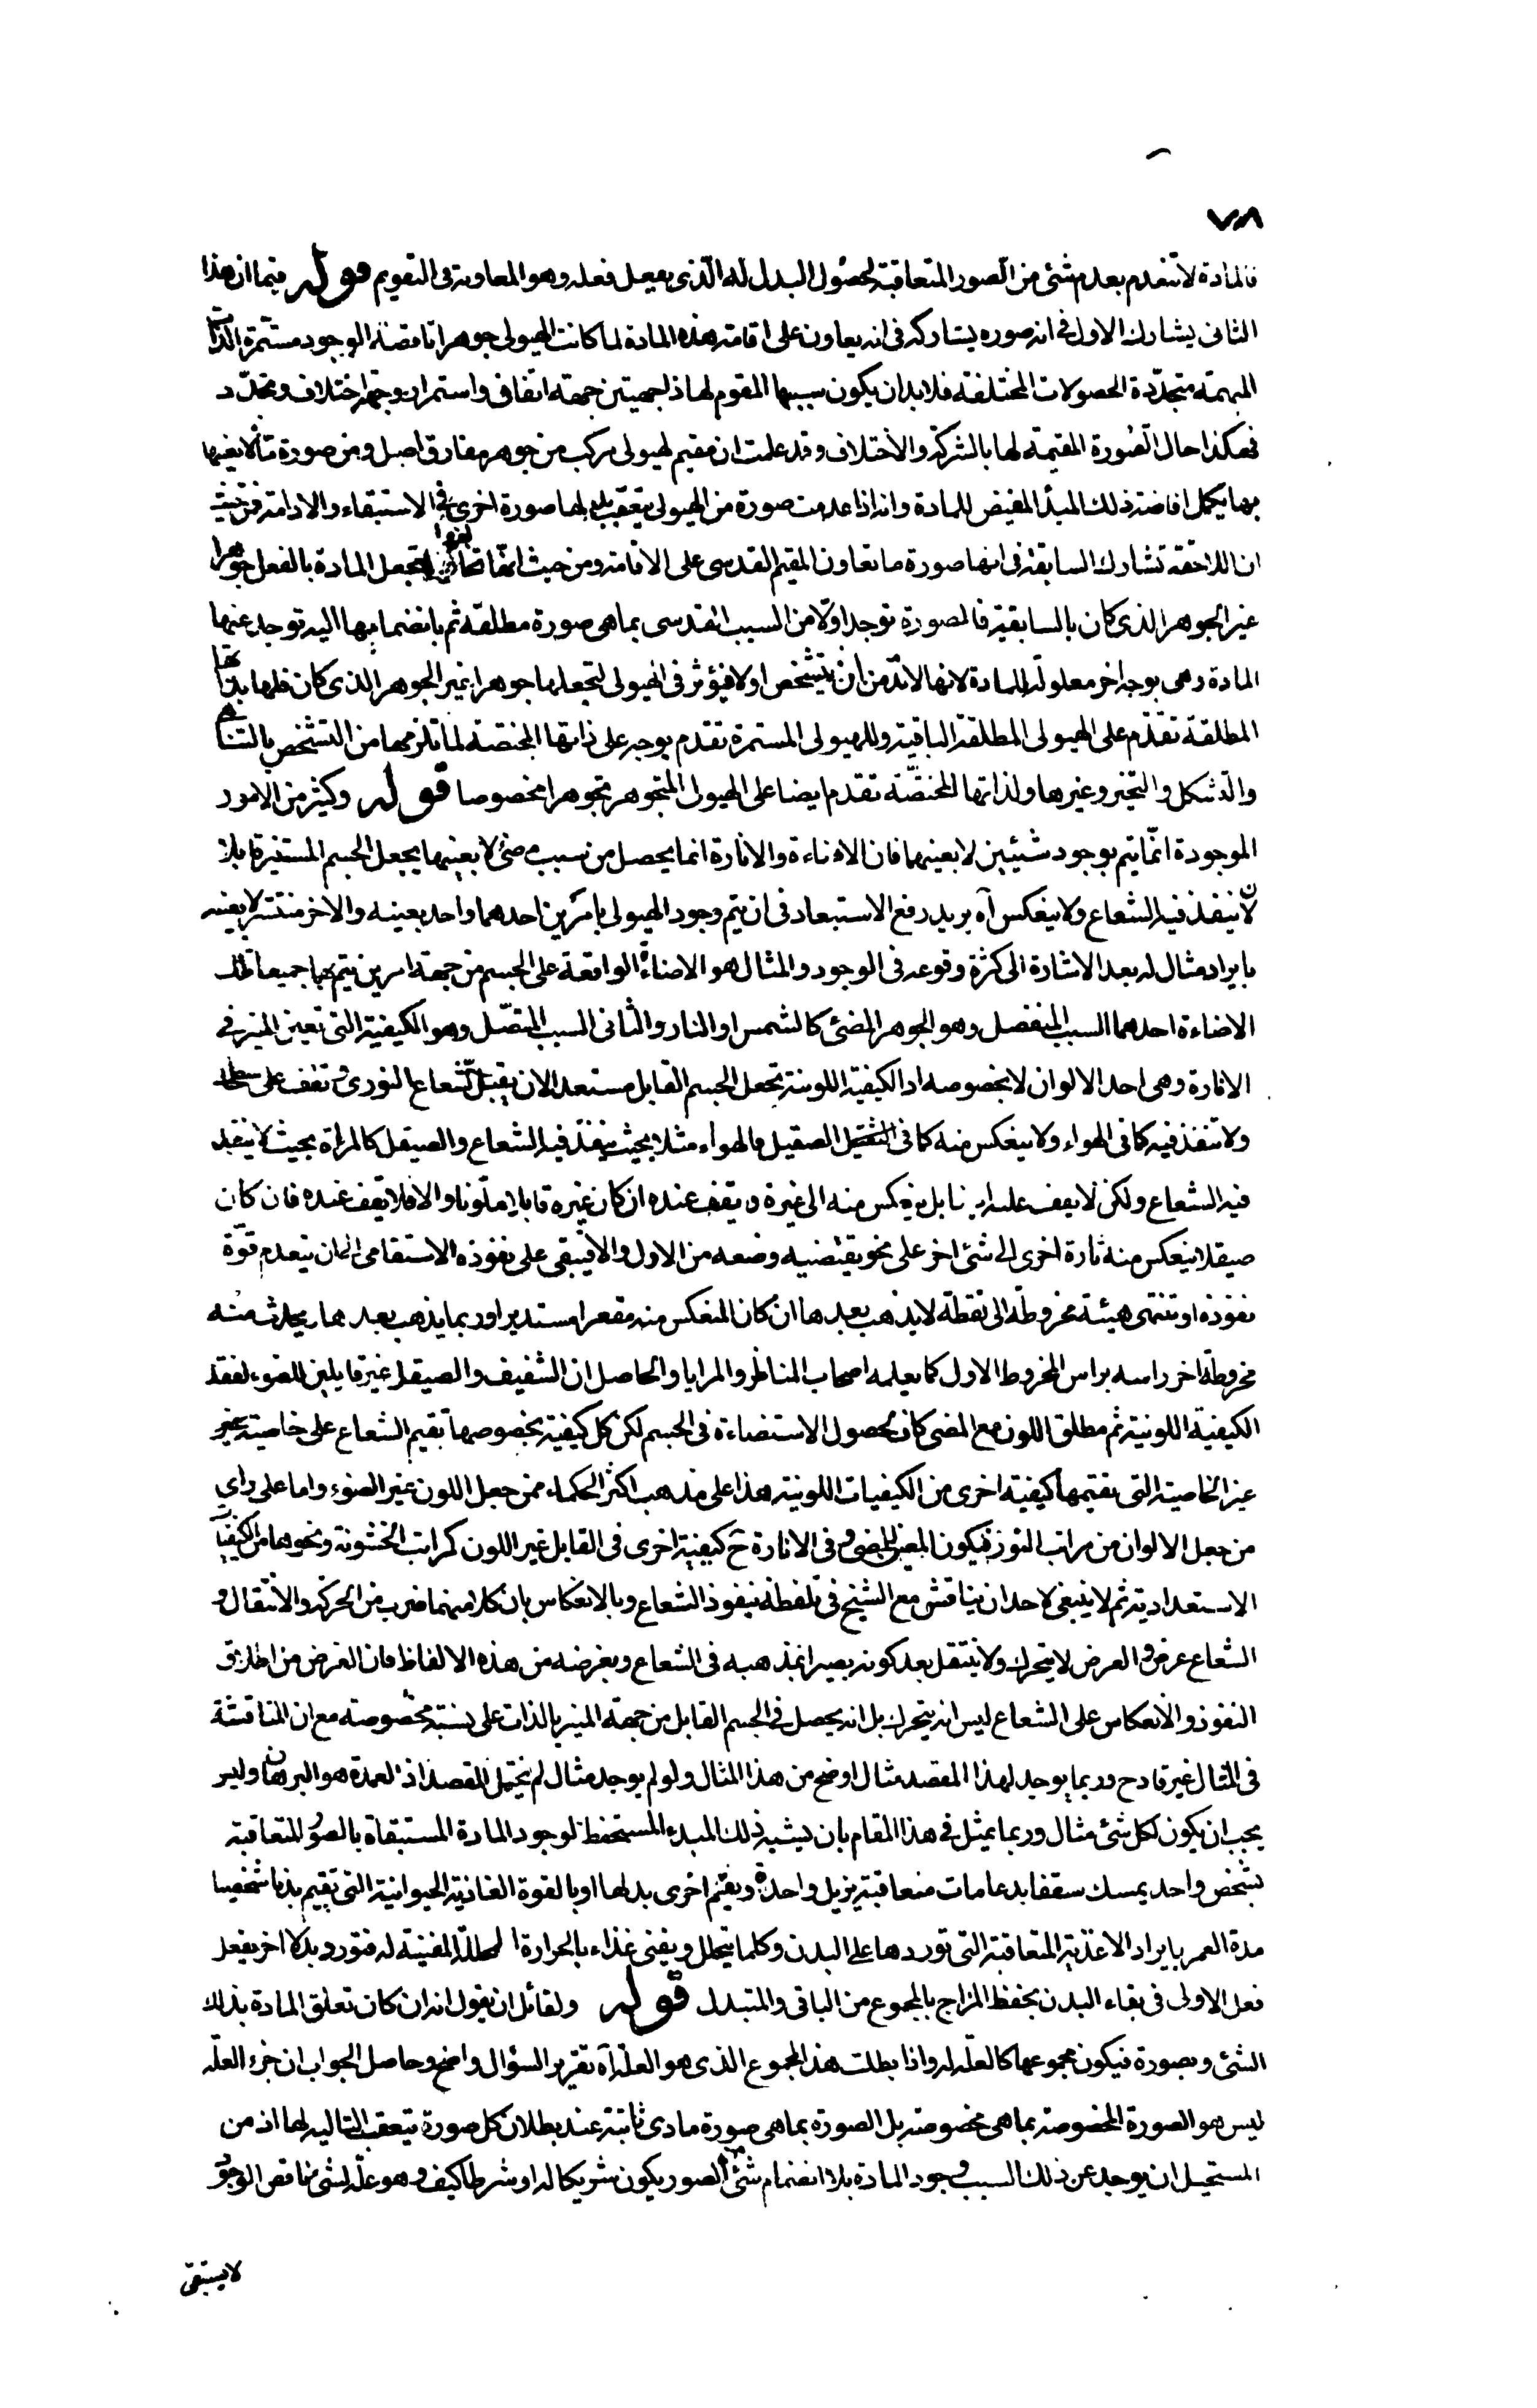 ٧٨
فالمادة لا تنعدم بعدم شئ من الصور المتعاقبة لحصول البدل له الذى يفعل فعله وهو المعاونة فى التقويم قوله فيما ان هذا
الثانى يشارك الاول فى انه صوره يشاركه فى انه يعاون على اقامة هذه المادة لما كانت الهيولى جوهرا ناقصة الوجود مستمرة الذات
المبهمة متجددة الحصولات المختلفة فلا بد ان يكون سببها المقوم لها ذا جهتين جهة اتفاق واستمرار وجهة اختلاف وتجدد
فهكذا حال الصورة المقيمة لها بالشركة والاختلاف وقد علمت ان مقيم الهيولى مركب من جوهر مفارق اصل ومن صورة ما لا بعينها
بها يكمل افاضة ذلك المبدأ المفيض للمادة وانه اذا عدمت صورة من الهيولى يتعقب لها صورة اخرى فى الاستبقاء والادامة فمن حيث
ان اللاحقة تشارك السابقة فى انها صورة ما تعاون المقيم القدسى على الاقامة ومن حيث انها تخالفها تجعل المادة بالفعل جوهرا
غير الجوهر الذى كان بالسابقية فالصورة توجد اولا من السبب القدسى بما هى صورة مطلقة ثم بانضمامها اليه توجد عنها
المادة وهى بوجه اخر معلولة للمادة لانها لا بد من ان تتشخص اولا فيؤثر فى الهيولى لتجعلها جوهرا غير الجوهر الذى كان فلها بذاتها
المطلقة تقدم على الهيولى المطلقة الباقية وللهيولى المستمرة تقدم بوجه على ذاتها المختصة لما تلزمها من التشخص بالتناهى
والتشكل والتحيز وغيرها ولذاتها المختصة تقدم ايضا على الهيولى المتجوهر تجوهرا مخصوصا قوله وكثير من الامور
الموجودة انما يتم بوجود شيئين لا بعينهما فان الاضاءة والانارة انما يحصل من سبب مضئ لا بعينها يجعل الجسم المستنير قابلا
لان ينفذ فيه الشعاع ولا ينعكس آه يريد رفع الاستبعاد فى ان يتم وجود الهيولى بامرين احدهما واحد بعينه والاخر منتشر لا بعينه
بايراد مثال له بعد الاشارة الى كثرة وقوعه فى الوجود والمثال هو الاضاءة الواقعة على الجسم من جهة امرين يتم بهما جميعا تلك
الاضاءة احدهما السبب المنفصل وهو الجوهر المضئ كالشمس او النار والثانى السبب المتصل وهو الكيفية التى تعين المنير فى
الانارة وهى احد الالوان لا بخصوصه اذ الكيفية اللونية تجعل الجسم القابل مستعدا لان يقبل الشعاع النورى وتقف على سطحه
ولا تنفذ فيه كما فى الهواء ولا ينعكس منه كما فى الصقيل فالهواء مثلا بحيث ينفذ فيه الشعاع والصيقل كالمراة بحيث لا ينفذ
فيه الشعاع ولكن لا يقف عليه ايضا بل ينعكس منه الى غيره ويقف عنده ان كان غيره قابلا ملونا والا فلا يقف عنده فان كان
صيقلا ينعكس منه تارة اخرى الى شئ اخر على نحو يقتضيه وضعه من الاول والا فيبقى على نفوذه الاستقامى الى ان ينعدم قوة
نفوذه او تنتهى هيئة مخروطة الى نقطة لا يذهب بعدها ان كان المنعكس منه مقعرا مستديرا وربما يذهب بعدها يحدث منه
مخروطة اخر راسه براس المخروط الاول كما يعلمه اصحاب المناظر والمرايا والحاصل ان الشفيف والصيقل غير قابلين للضوء لفقد
الكيفية اللونية ثم مطلق اللون مع المضى كان لحصول الاستضاءة فى الجسم لكن كل كيفية بخصوصها تقيم الشعاع على خاصية غير
غير الخاصية التى تقيمها كيفية اخرى من الكيفيات اللونية هذا على مذهب اكثر الحكماء ممن جعل اللون غير الضوء واما على راى
من جعل الالوان من مراتب النور فيكون المعين للمضى فى الانارة ح كيفية اخرى فى القابل غير اللون كمراتب الخشونة ونحوها من الكيفيات
الاستعدادية ثم لا ينبغى لاحد ان يناقش مع الشيخ فى تلفظه بنفوذ الشعاع وبالانعكاس بان كلا منهما ضرب من الحركة والانتقال و
الشعاع عرض والعرض لا يتحرك ولا ينتقل بعد كونه بصيرا بمذهبه فى الشعاع وبغرضه من هذه الالفاظ فان الغرض من اطلاق
النفوذ والانعكاس على الشعاع ليس انه يتحرك بل انه يحصل فى الجسم القابل من جهة المنير بالذات على نسبة مخصوصة مع ان المناقشة
فى المثال غير قادح وربما يوجد لهذا المقصد مثال اوضح من هذا المثال ولو لم يوجد مثال لم يختل المقصد اذ العمدة هو البرهان وليس
يجب ان يكون لكل شئ مثال وربما يمثل فى هذا المقام بان يشبه ذلك المبدء المستحفظ لوجود المادة المستبقاة بالصور المتعاقبة
بشخص واحد يمسك سقفا بدعامات متعاقبة يزيل واحدة ويقيم اخرى بدلها او بالقوة الغاذية الحيوانية التى تقيم بدنا شخصيا
مدة العمر بايراد الاغذية المتعاقبة التى توردها على البدن وكلما يتحلل ويفنى غذاء بالحرارة المحللة المفنية له فتورد بدلا اخر يفعل
فعل الاولى فى بقاء البدن بحفظ المزاج بالمجموع من الباقى والمتبدل قوله ولقائل ان يقول انه ان كان تعلق المادة بذلك
الشئ وبصورة فيكون مجموعهما كالعلة له واذا بطلت هذا المجموع الذى هو العلة آه تقرير السؤال واضح وحاصل الجواب ان جزء العلة
ليس هو الصورة المخصوصة بما هى مخصوصة بل الصورة بما هى صورة مادى ثابتة عند بطلان كل صورة يتعقب التاليه لها اذ من
المستحيل ان يوجد عن ذلك السبب وجود المادة بلا انضمام شئ من الصور يكون شريكا له او شرطا كيف وهو علة لشئ ناقص الوجود
لا يستبقى